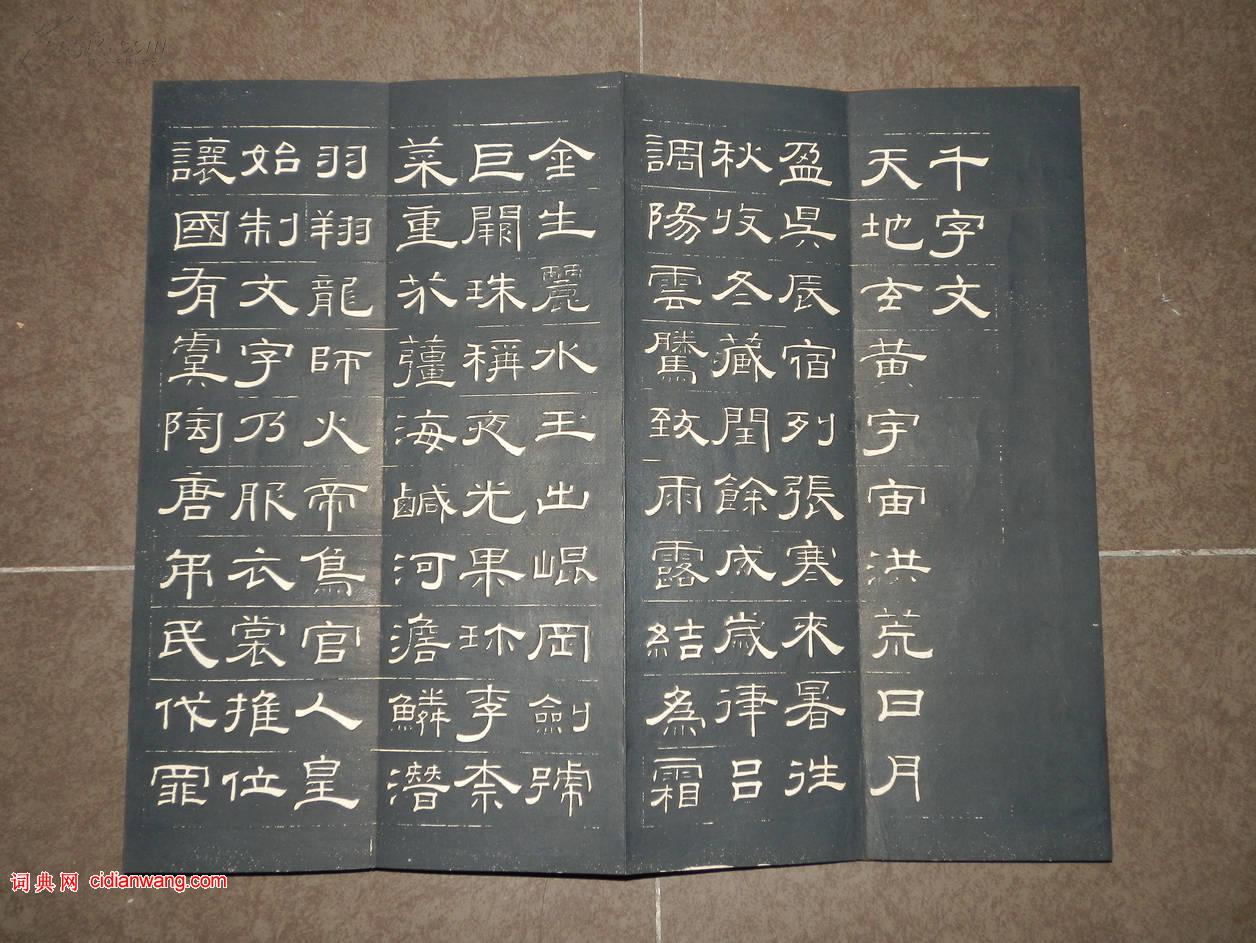 千字文
天地玄黃宇宙洪荒日月
盈昃辰宿列張寒來暑往
秋收冬藏閏餘成歲律呂
調陽雲騰致雨露結為霜
金生麗水玉出崐岡劍號
巨闕珠稱夜光果珎李柰
菜重芥薑海鹹河澹鱗潛
羽翔龍師火帝鳥官人皇
始制文字乃服衣裳推位
讓國有虞陶唐弔民伐罪
词典网 cidianwang.com